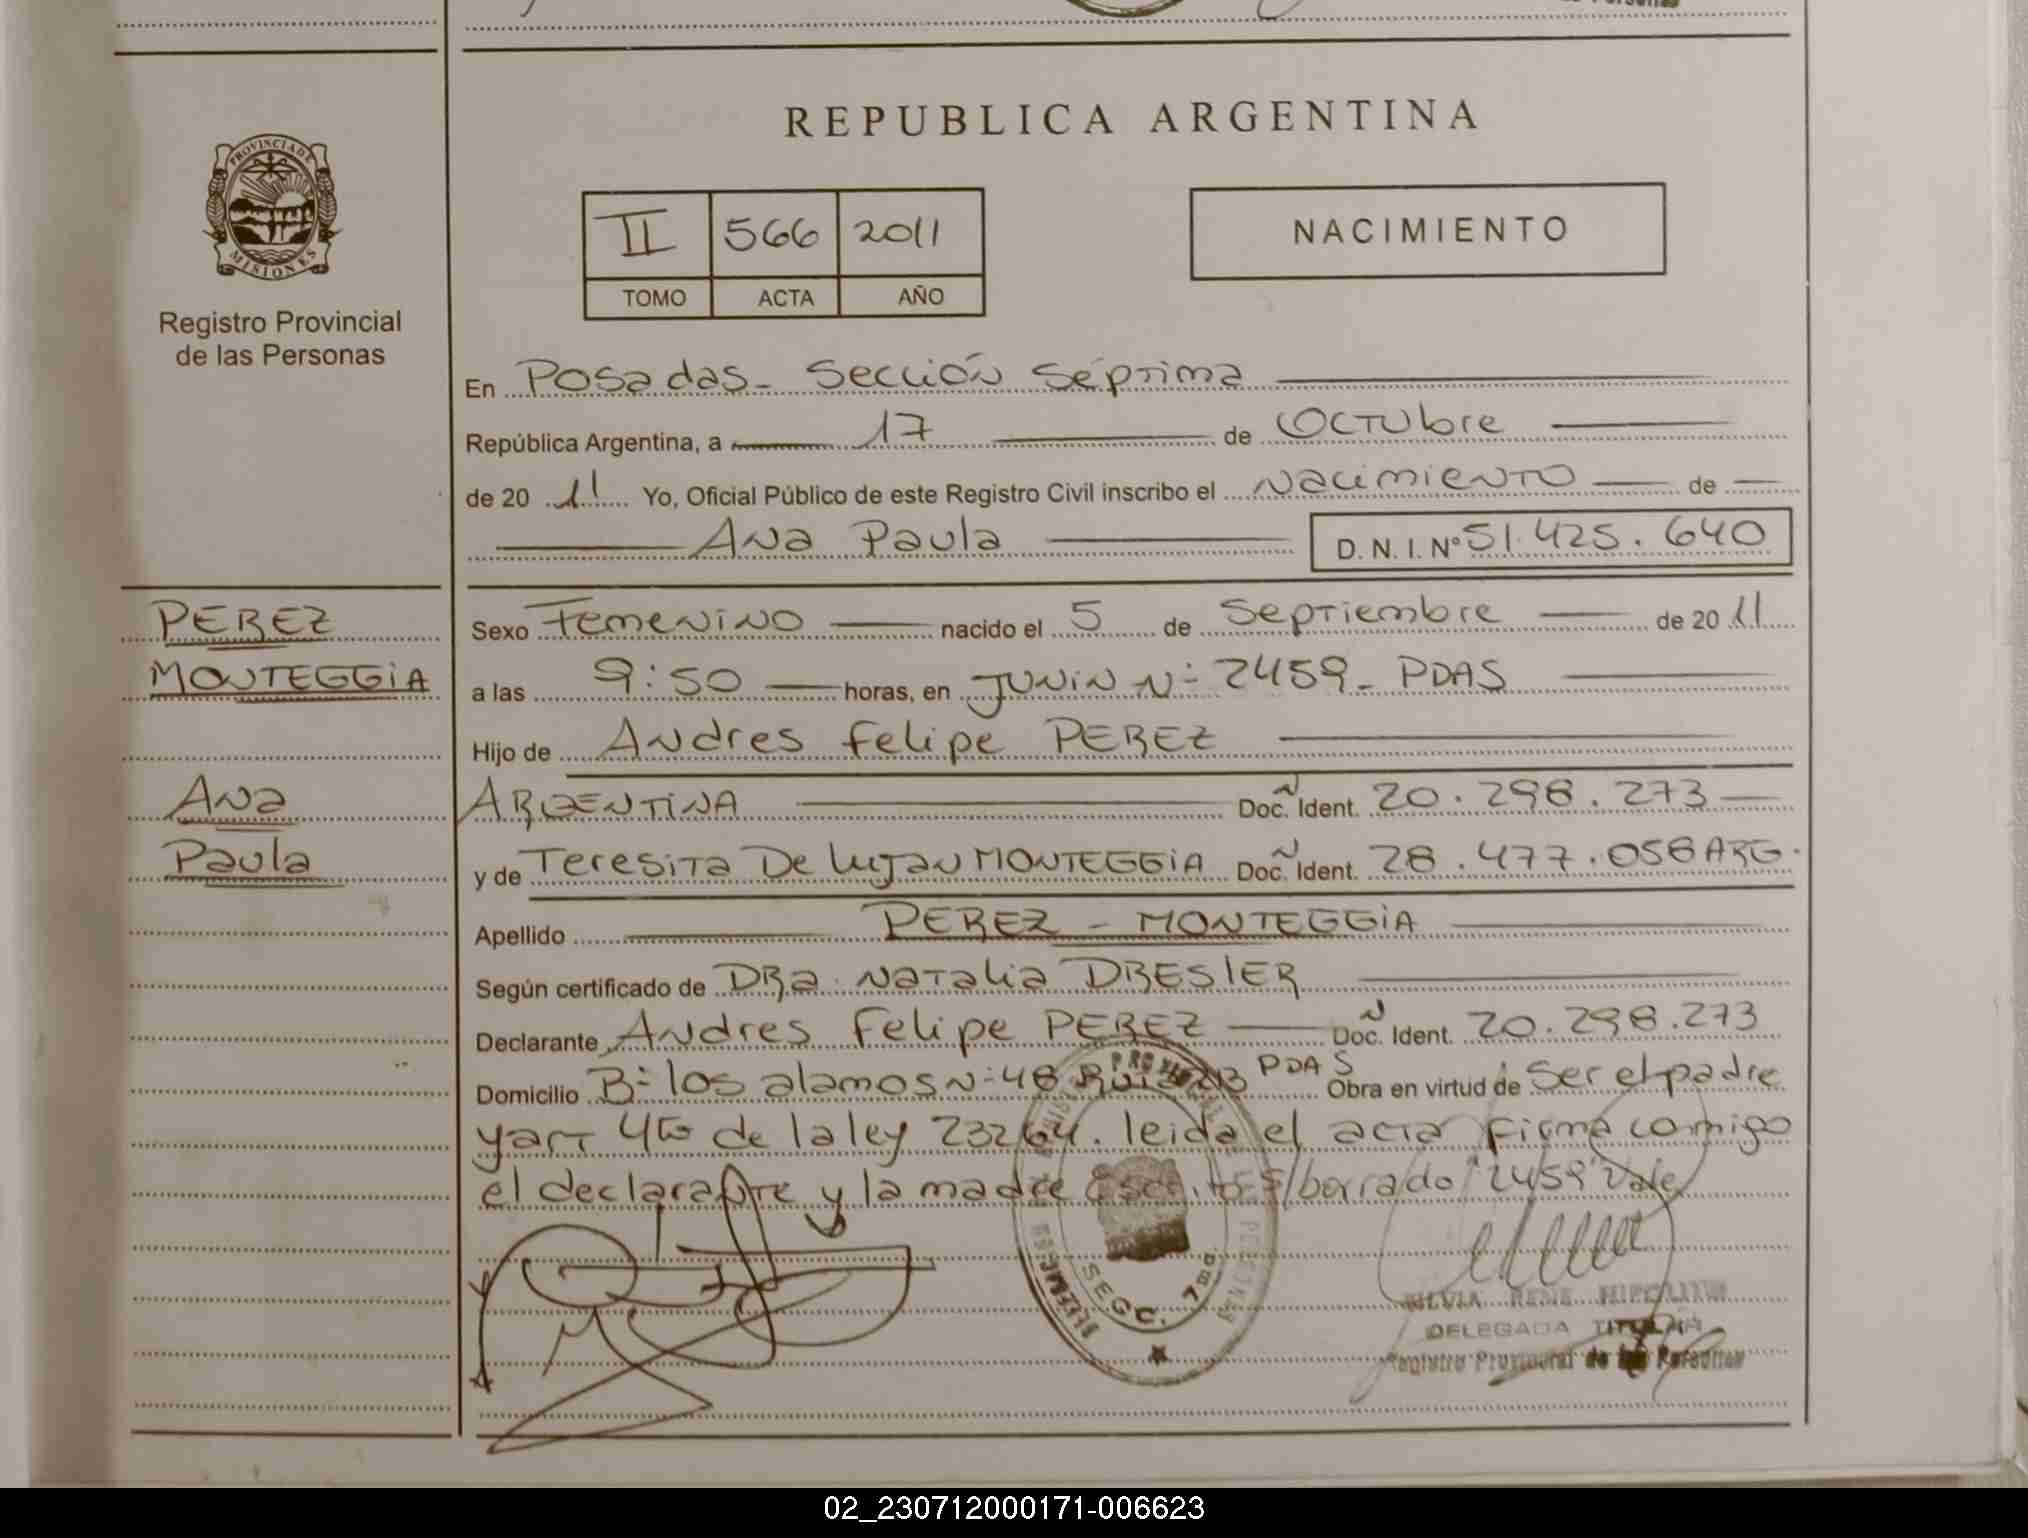 REPUBLICA ARGENTINA
PROVINCIA DE
MISIONES
Registro Provincial
de las Personas
II 566 2011
TOMO ACTA AÑO
NACIMIENTO
En Posadas - Sección Séptima
República Argentina, a 17 de Octubre
de 20 11 Yo, Oficial Público de este Registro Civil inscribo el Nacimiento de
Ana Paula D. N. I. Nº 51.425.640
PEREZ
MONTEGGIA
Ana
Paula
Sexo Femenino nacido el 5 de Septiembre de 20 11
a las 9:50 horas, en JUNIN Nº 2459 - PDAS
Hijo de Andres Felipe PEREZ
ARGENTINA Doc. Ident. 20.298.273
y de Teresita De Lujan MONTEGGIA Doc. Ident. 28.477.058 ARG.
Apellido PEREZ - MONTEGGIA
Según certificado de DRa. Natalia DRESLER
Declarante Andres Felipe PEREZ Doc. Ident. 20.298.273
Domicilio Bº los alamos Nº 48 PDAS Obra en virtud de ser el padre
y art 4to de la ley 23264. leida el acta firma conmigo
el declarante y la madre S/borrado "2459" Vale
SECC. 7ma
DELEGADA TITULAR
Registro Provincial de las Personas
02_230712000171-006623